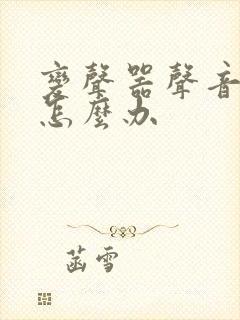 變聲器聲音
怎麼办
菡雪